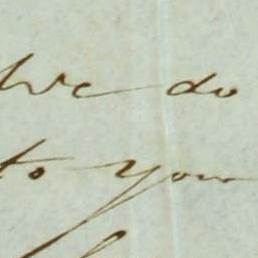 We do
to you